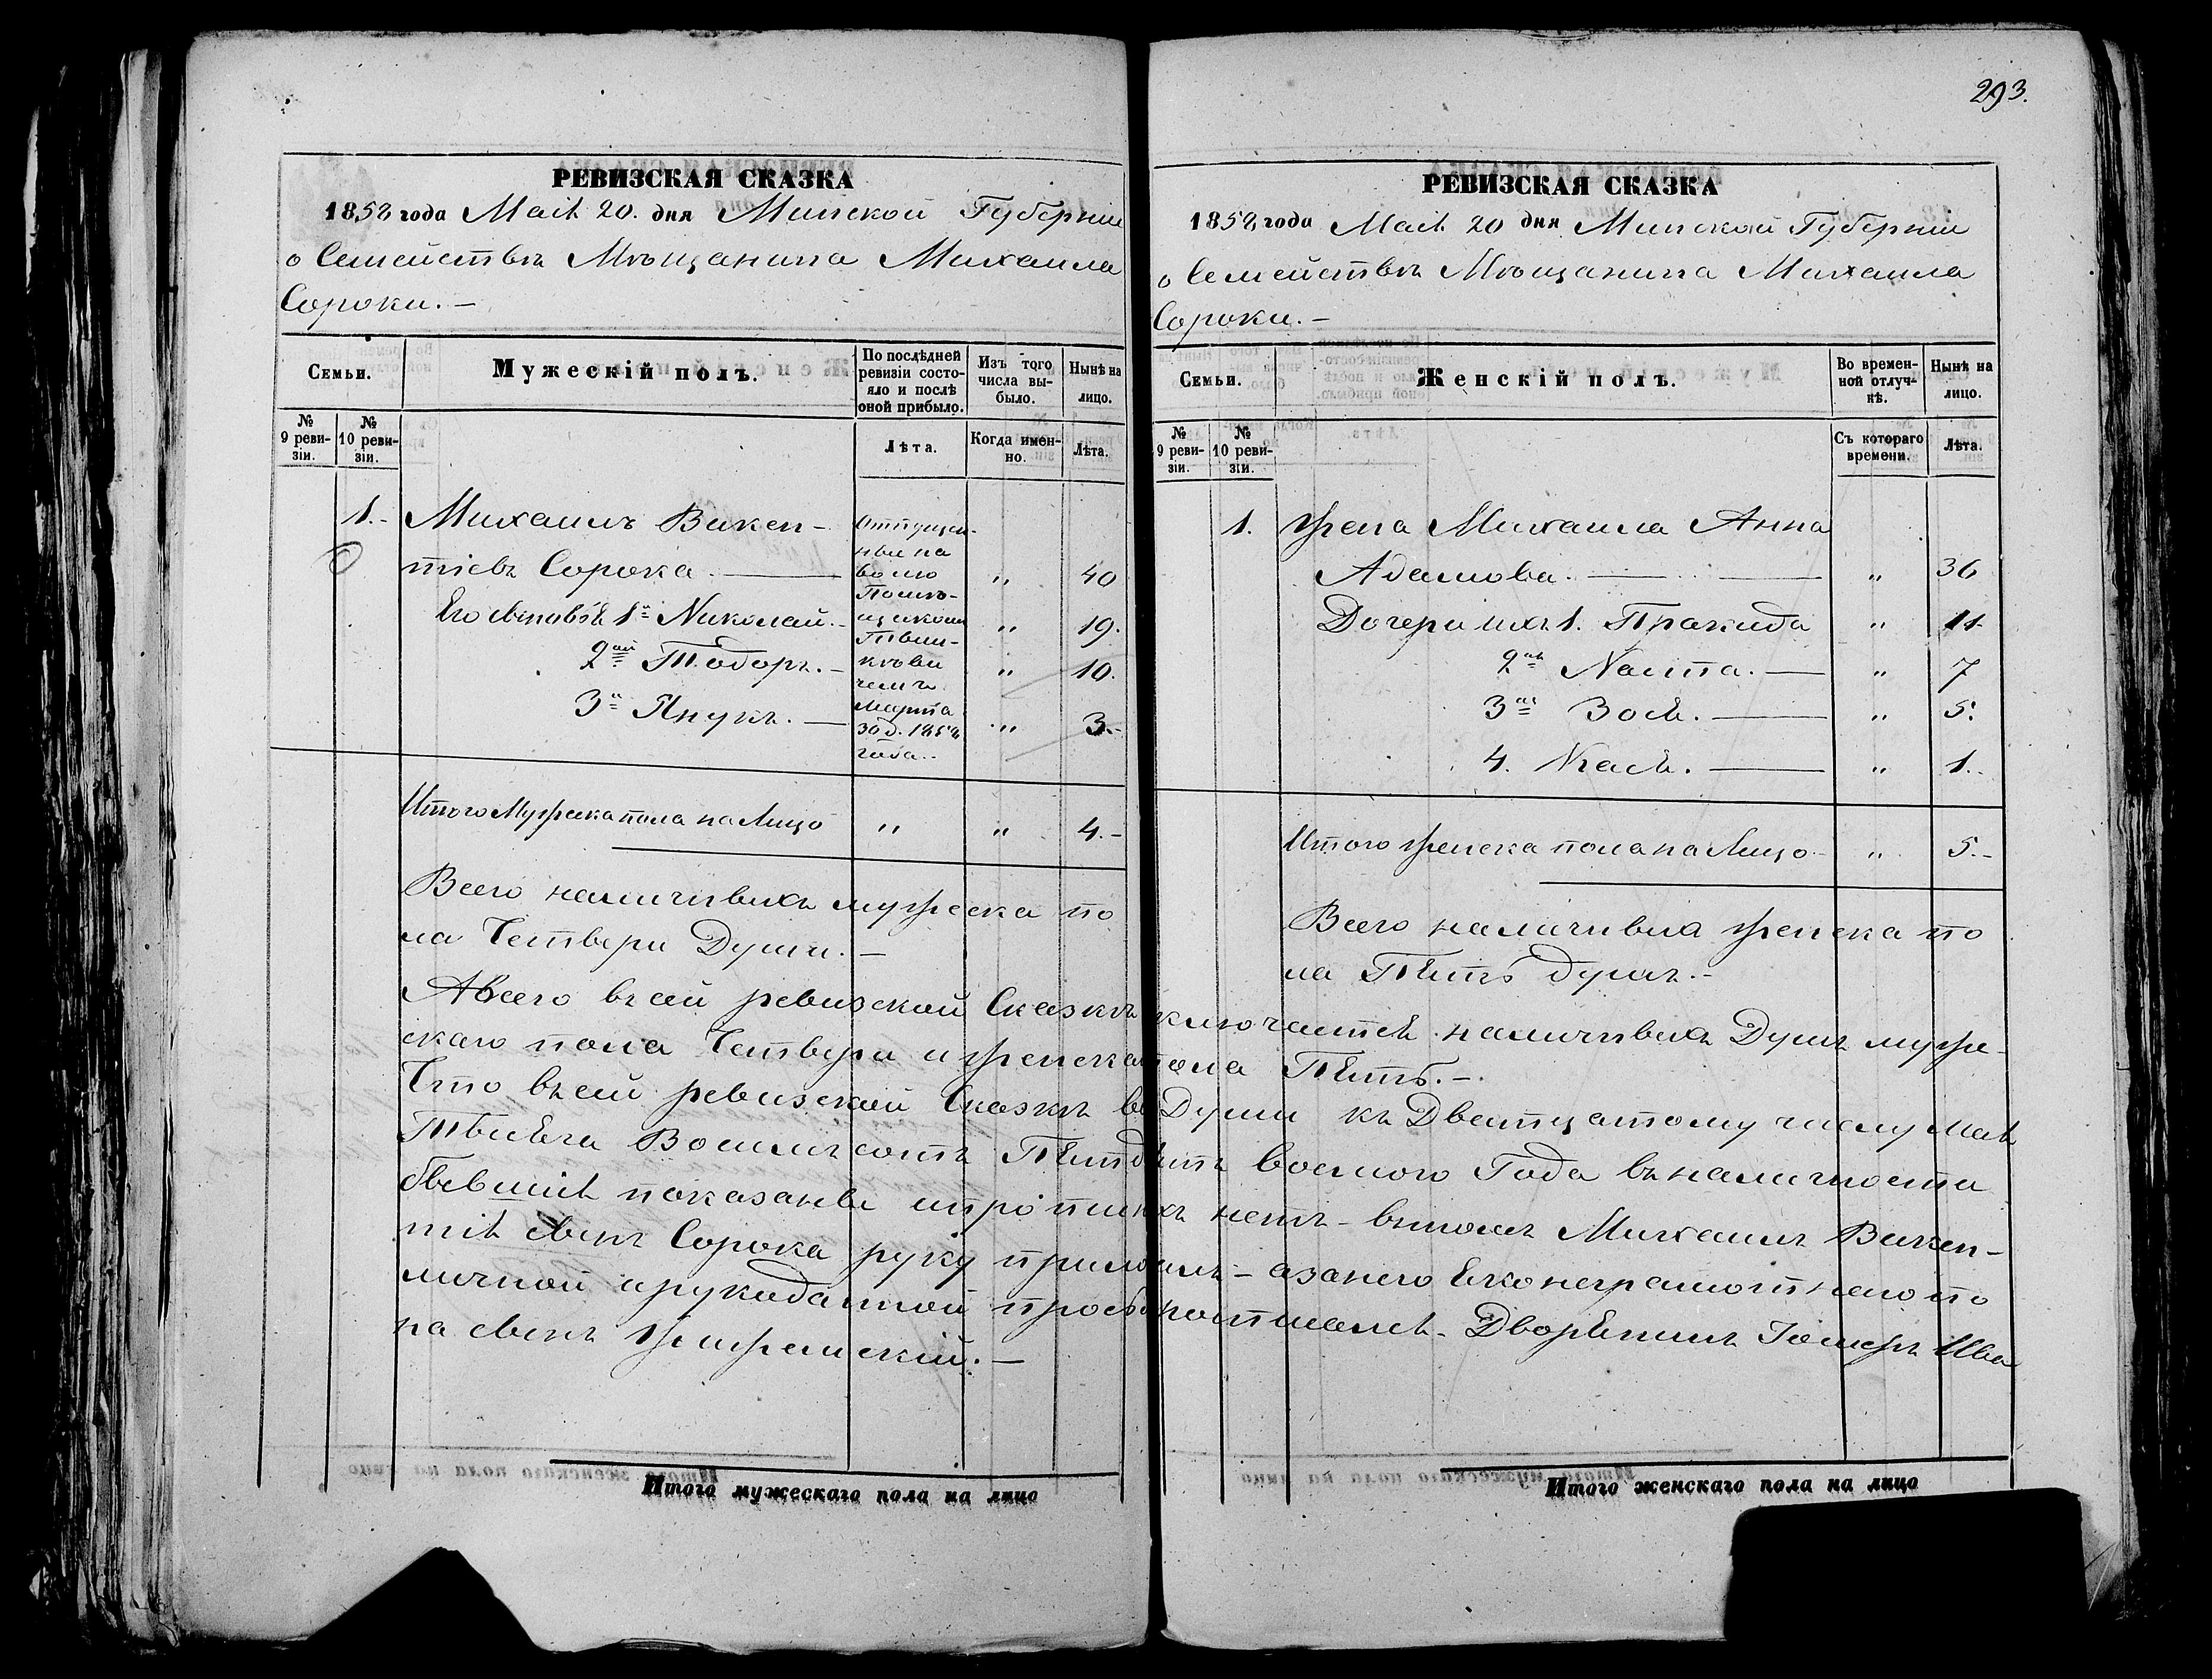 293.
РЕВИЗСКАЯ СКАЗКА
1858 года Маія 20. дня Минской Губерніи
о Семействѣ Мѣщанина Михаила
Сороки. —
Семьи.
Мужескій полъ.
По послѣдней ревизіи состояло и послѣ оной прибыло.
Изъ того числа выбыло.
Нынѣ на лицо.
№ 9 ревизіи.
№ 10 ревизіи.
Лѣта.
Когда именно.
Лѣта.
1.- Михаилъ Викен-
тіевъ Сорока. — „ 40
Его сыновья 1й Николай. - „ 19.
2ой Тодоръ. - „ 10.
3й Янукъ. — „ 3.-
Отпущен-
ны на
волю
Помѣ-
щикомъ
Марта
30 д. 1858
года..
Итого Мужеска пола на Лицо „ „ 4.-
Всего наличныхъ мужеска по
ла Четыри Души. -
РЕВИЗСКАЯ СКАЗКА
1858 года Маія 20 дня Минской Губерніи
о Семействѣ Мѣщанина Михаила
Сороки. —
Семьи.
Женскій полъ.
Во временной отлучкѣ.
Нынѣ на лицо.
№ 9 ревизіи.
№ 10 ревизіи.
Съ котораго времени.
Лѣта.
1. Жена Михаила Анна
Адамова. — „ 36
Дочери ихъ 1. Пракида „ 11.
2ая Наста. — „ 7
3ая Зося. — „ 5.
4. Кася. — „ 1.
Итого женска пола на Лицо - „ 5.-
Всего наличныхъ женска по
ла Пять душъ. -
А всего въ сей ревизской Сказкѣ ключается наличныхъ Душъ муже-
скаго пола Четыри и женска пола Пять. -.
Что въ сей ревизской Сказкѣ все Души къ Дватцатому числу Маія
Тысяча Восимъ сотъ Пятдятъ восмого Года въ наличности
бывшія показаны и пропиныхъ нетъ - вътомъ Михаилъ Викен-
тія сынъ Сорока руку приложилъ - а за него Яко неграмотнаго по
личной ирукоданной прозбѣ росписался - Дворянинъ Іосифъ Ива
на сынъ Жижемскій. —
Итого мужескаго пола на лицо
Итого женскаго пола на лицо